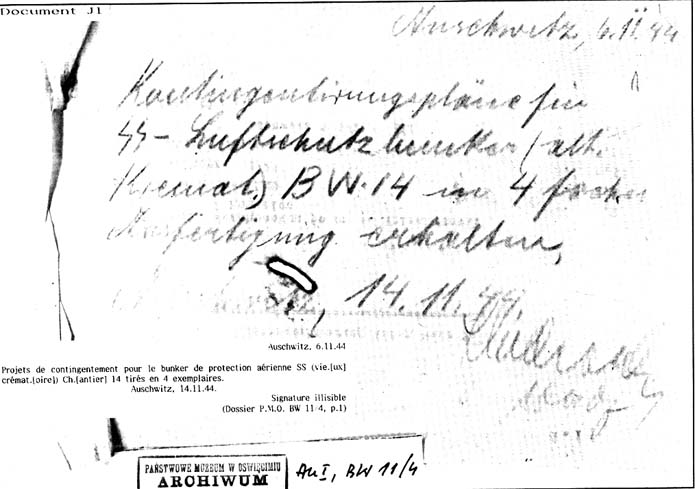 Document J1
Auschwitz, 6.11.44
Kontingentirungspläne für
SS - Luftschutzbunker (alt.
Kremat.) BW. 14 in 4 facher
Ausfertigung erhalten,
14. 11. 44.
Auschwitz, 6.11.44
Projets de contingentement pour le bunker de protection aérienne SS (vie.[ux]
crémat.[oire]) Ch.[antier] 14 tirés en 4 exemplaires.
Auschwitz, 14.11.44.
Signature illisible
(Dossier P.M.O. BW 11-4, p.1)
PAŃSTWOWE MUZEUM W OŚWIĘCIMIU
ARCHIWUM
Au I, BW 11/4